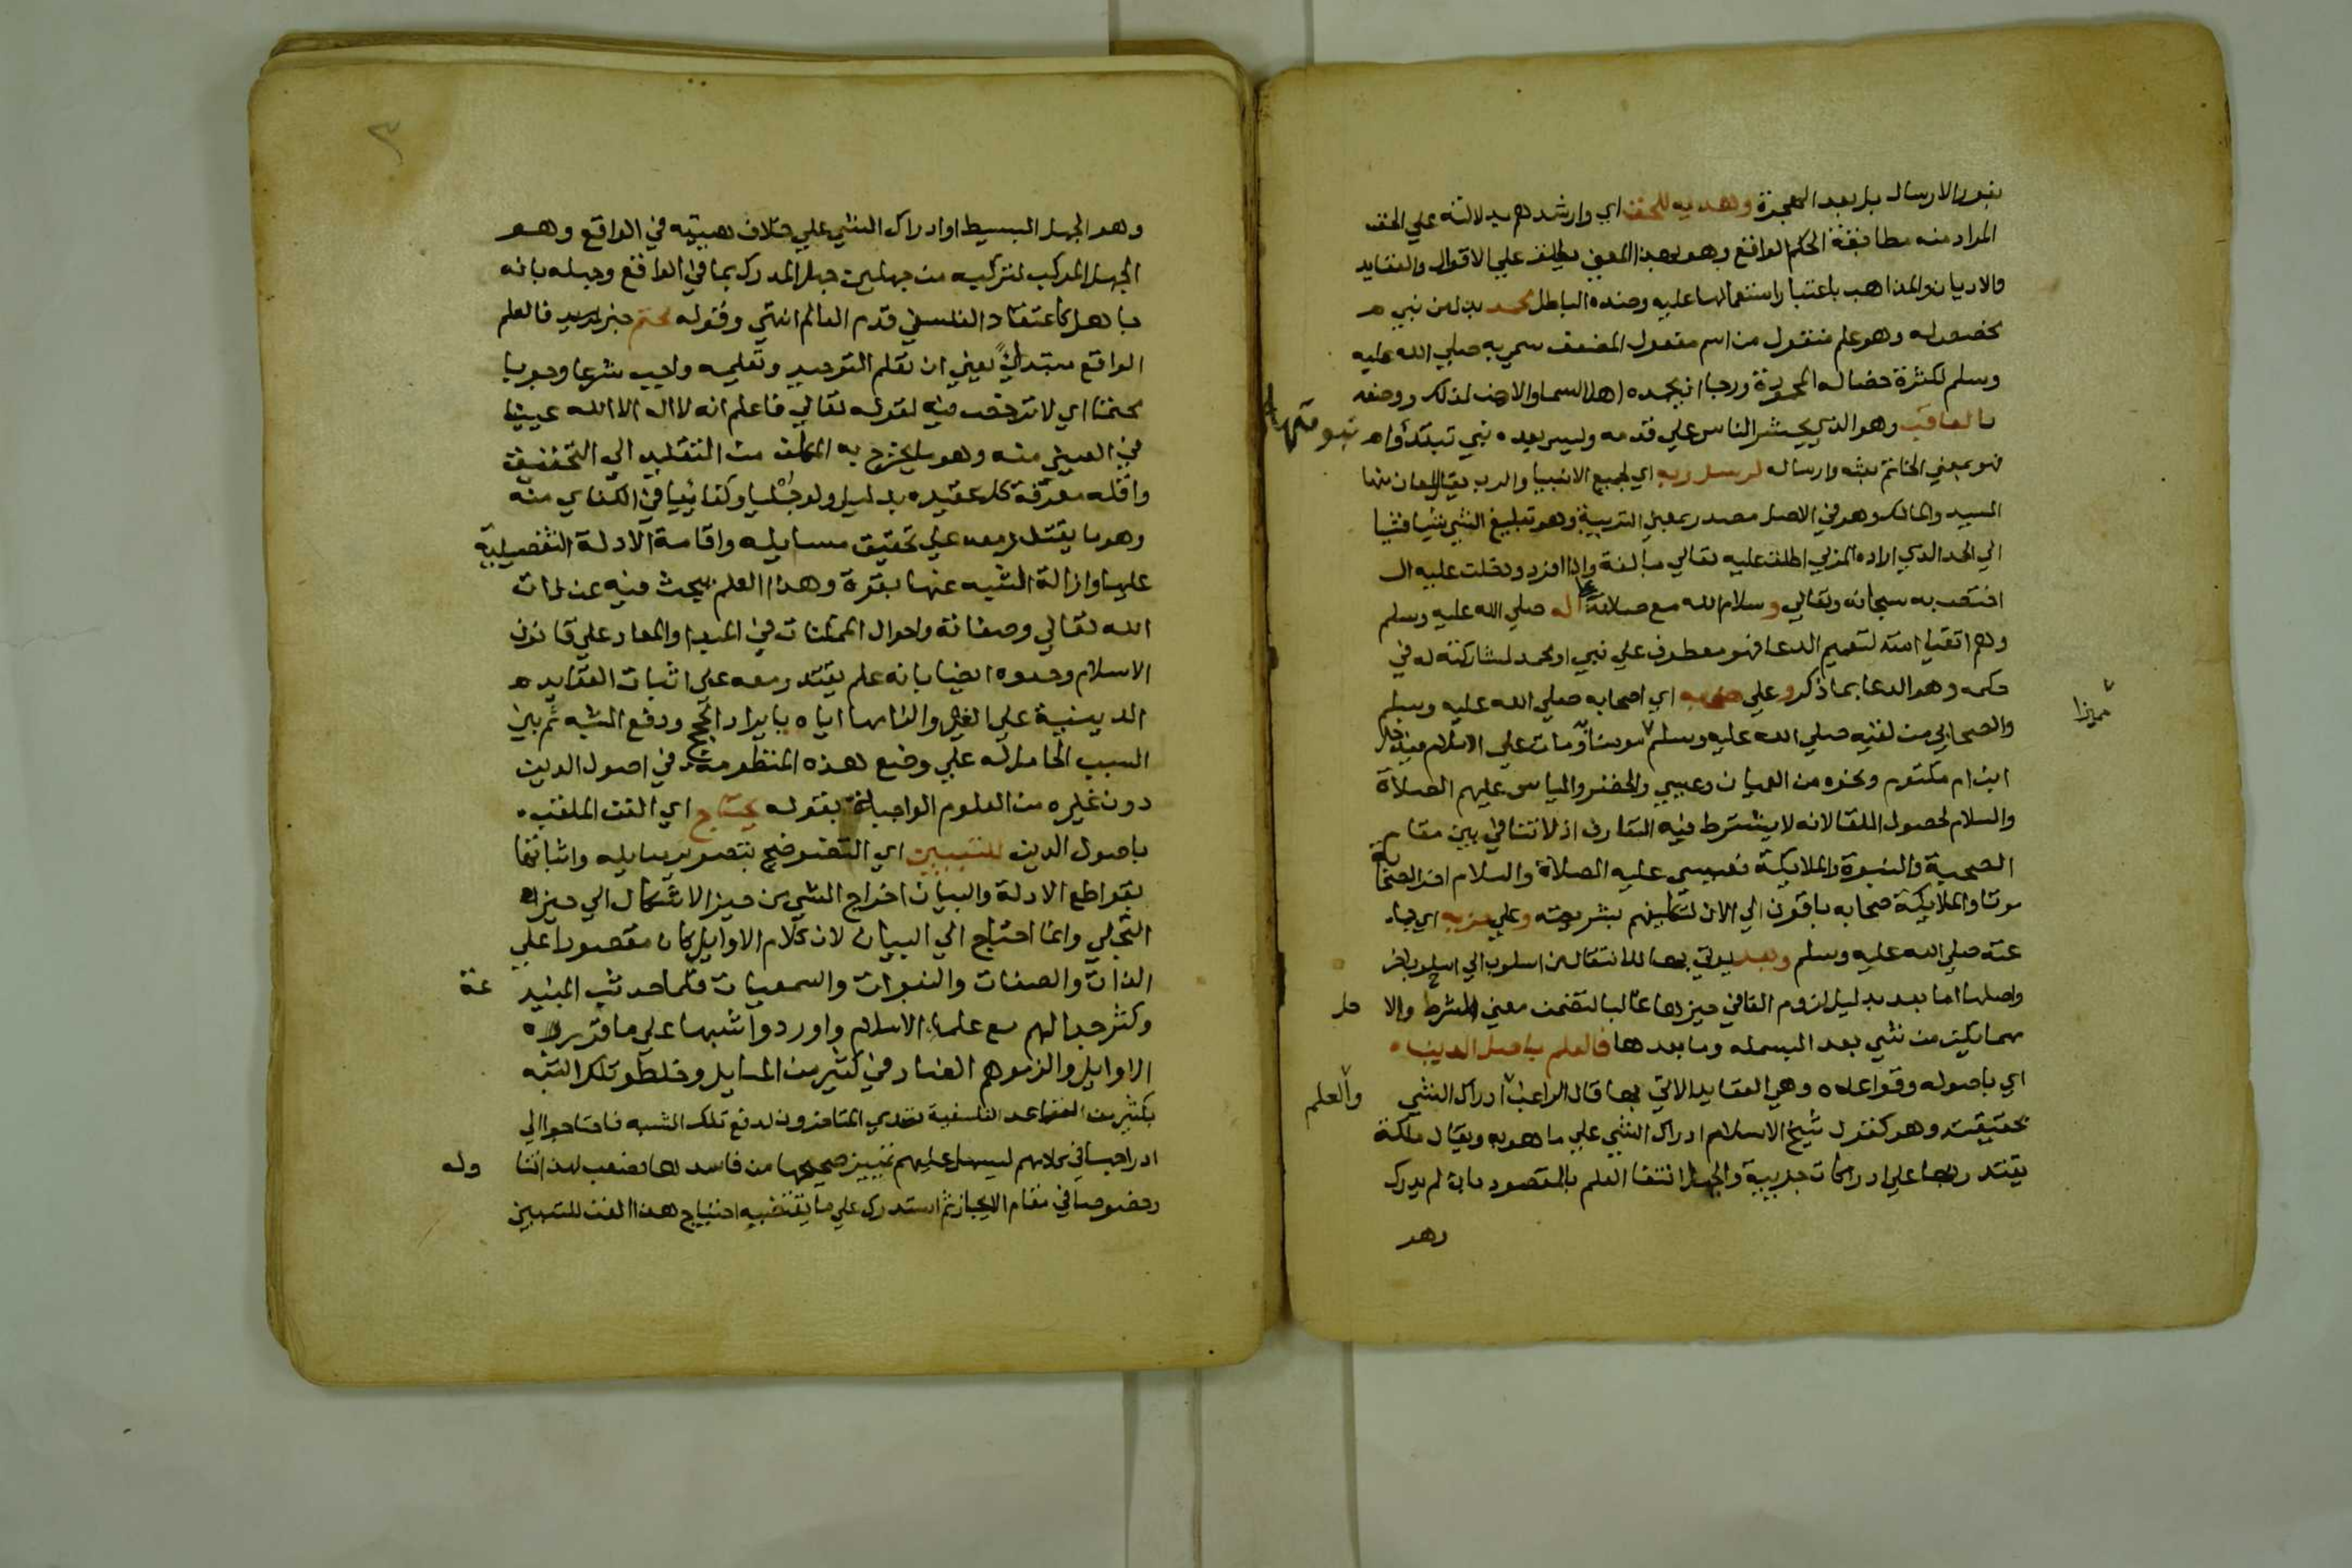 بفور الارسال بل بعد الهجرة وهديه للحق اي وارشدهم بدلالته علي الحق
المراد منه مطابقة الحكم الواقع وهو بهذا المعني يطلق علي الاقوال والعقايد
والاديان والمذاهب باعتبار اشتمالها عليه وضده الباطل محمد بدل من نبي
مخصص له وهو علم منقول من اسم مفعول المضعف سمي به صلي الله عليه
وسلم لكثرة خصاله المحمودة ورجا ان يحمده اهل السما والارض لذلك ووصفه
بالعاقب وهو الذي يحشر الناس علي قدمه وليس بعده نبي تبتدأ
فهو بمعني الخاتم بعثه وارساله لرسل ربه اي لجميع الانبيا والرب يقال لمعان منها
السيد والمالك وهو في الاصل مصدر بمعني التربية وهو تبليغ الشي شيا فشيا
الي الحد الذي اراده المربي اطلق عليه تعالي مبالغة واذا افرد ودخلت عليه ال
اختص به سبحانه وتعالي وسلام الله مع صلاته علي اله صلي الله عليه وسلم
وهم اتقيا امته لتعميم الدعا فهو معطوف علي نبي او محمد لمشاركته له في
حكمه وهو الدعا بما ذكر وعلي صحبه اي اصحابه صلي الله عليه وسلم
مميزا
والصحابي من لقيه صلي الله عليه وسلم مومنا ومات علي الاسلام فيدخل
ابن ام مكتوم ونحوه من العميان وعيسي والخضر والياس عليهم الصلاة
والسلام لحصول اللقا لانه لا يشترط فيه التعارف اذ لا تنافي بين مقام
الصحبة والنبوة والملايكة فعيسي عليه الصلاة والسلام اخر الصحابة
موتا والملايكة صحابه باقون الي الان لتكليفهم بشريعته وعلي حزبه اي جماعته
عته صلي الله عليه وسلم وبعد يوتي بها للانتقال من اسلوب الي اسلوب اخر
واصلها اما بعد بدليل لزوم الفا في حيزها غالبا لتضمن معني الشرط والا صل
مهما يكن من شي بعد البسمله وما بعدها فالعلم باصل الدين
اي باصوله وقواعده وهي العقايد الاتي بها قال الراغب ادراك الشي
والعلم
بحقيقته وهو كقول شيخ الاسلام ادراك الشي علي ما هو به ويقال ملكة
يقتدر بها علي ادراكات جزييه والجهل انتفا العلم بالمقصود بان لم يدرك
وهو
٣
وهو الجهل البسيط او ادراك الشي علي خلاف هييته في الواقع وهو
الجهل المركب لتركبه من جهلين جهل المدرك بما في الواقع وجهله بانه
جاهل كاعتقاد الفلسفي قدم العالم انتهي وقوله محتم خبر فالعلم
الواقع مبتدا يعني ان تعلم التوحيد وتعليمه واجب شرعا وجوبا
محتما اي لا ترخص فيه لقوله تعالي فاعلم انه لا اله الا الله عينيا
في العيني منه وهو ما يخرج به المكلف من التقليد الي التحقيق
واقله معرفة كل عقيده بدليل ولو جمليا وكفائيا في الكفاي منه
وهو ما يقتدر معه علي تحقيق مسايله واقامة الادلة التفصيلية
عليها وازالة الشبه عنها بقوة وهذا العلم يبحث فيه عن ذات
الله تعالي وصفاته واحوال الممكنات في المبدا والمعاد علي قانون
الاسلام وحدوه ايضا بانه علم يقتدر معه علي اثبات العقايد
الدينية علي الغير والزامها اياه بايراد الحجج ودفع الشبه ثم بين
السبب الحامل له علي وضع هذه المنظومة في اصول الدين
دون غيره من العلوم الواجبة بقوله يحتاج اي الفن الملقب
باصول الدين للتبيين اي التوضيح بتصوير مسايله واثباتها
بقواطع الادلة والبيان اخراج الشي من حيز الاشكال الي حيز
التجلي وانما احتاج الي البيان لان كلام الاوايل كان مقصورا علي
الذات والصفات والنبوات والسمعيات فلما حدثت المبتدعة
وكثر جدالهم مع علما الاسلام واوردوا شبها علي ما قرره
الاوايل والزموهم الفساد في كثير من المسايل وخلطو تلك الشبه
بكثير من القواعد الفلسفية تصدي المتاخرون لدفع تلك الشبه فاحتاجوا الي
ادراجها في كلامهم ليسهل عليهم تمييز صحيحها من فاسدها فصعب لهذا تناوله
وخصوصا في مقام الايجاز ثم استدرك علي ما يقتضيه احتياج هذا الفن للتبيين